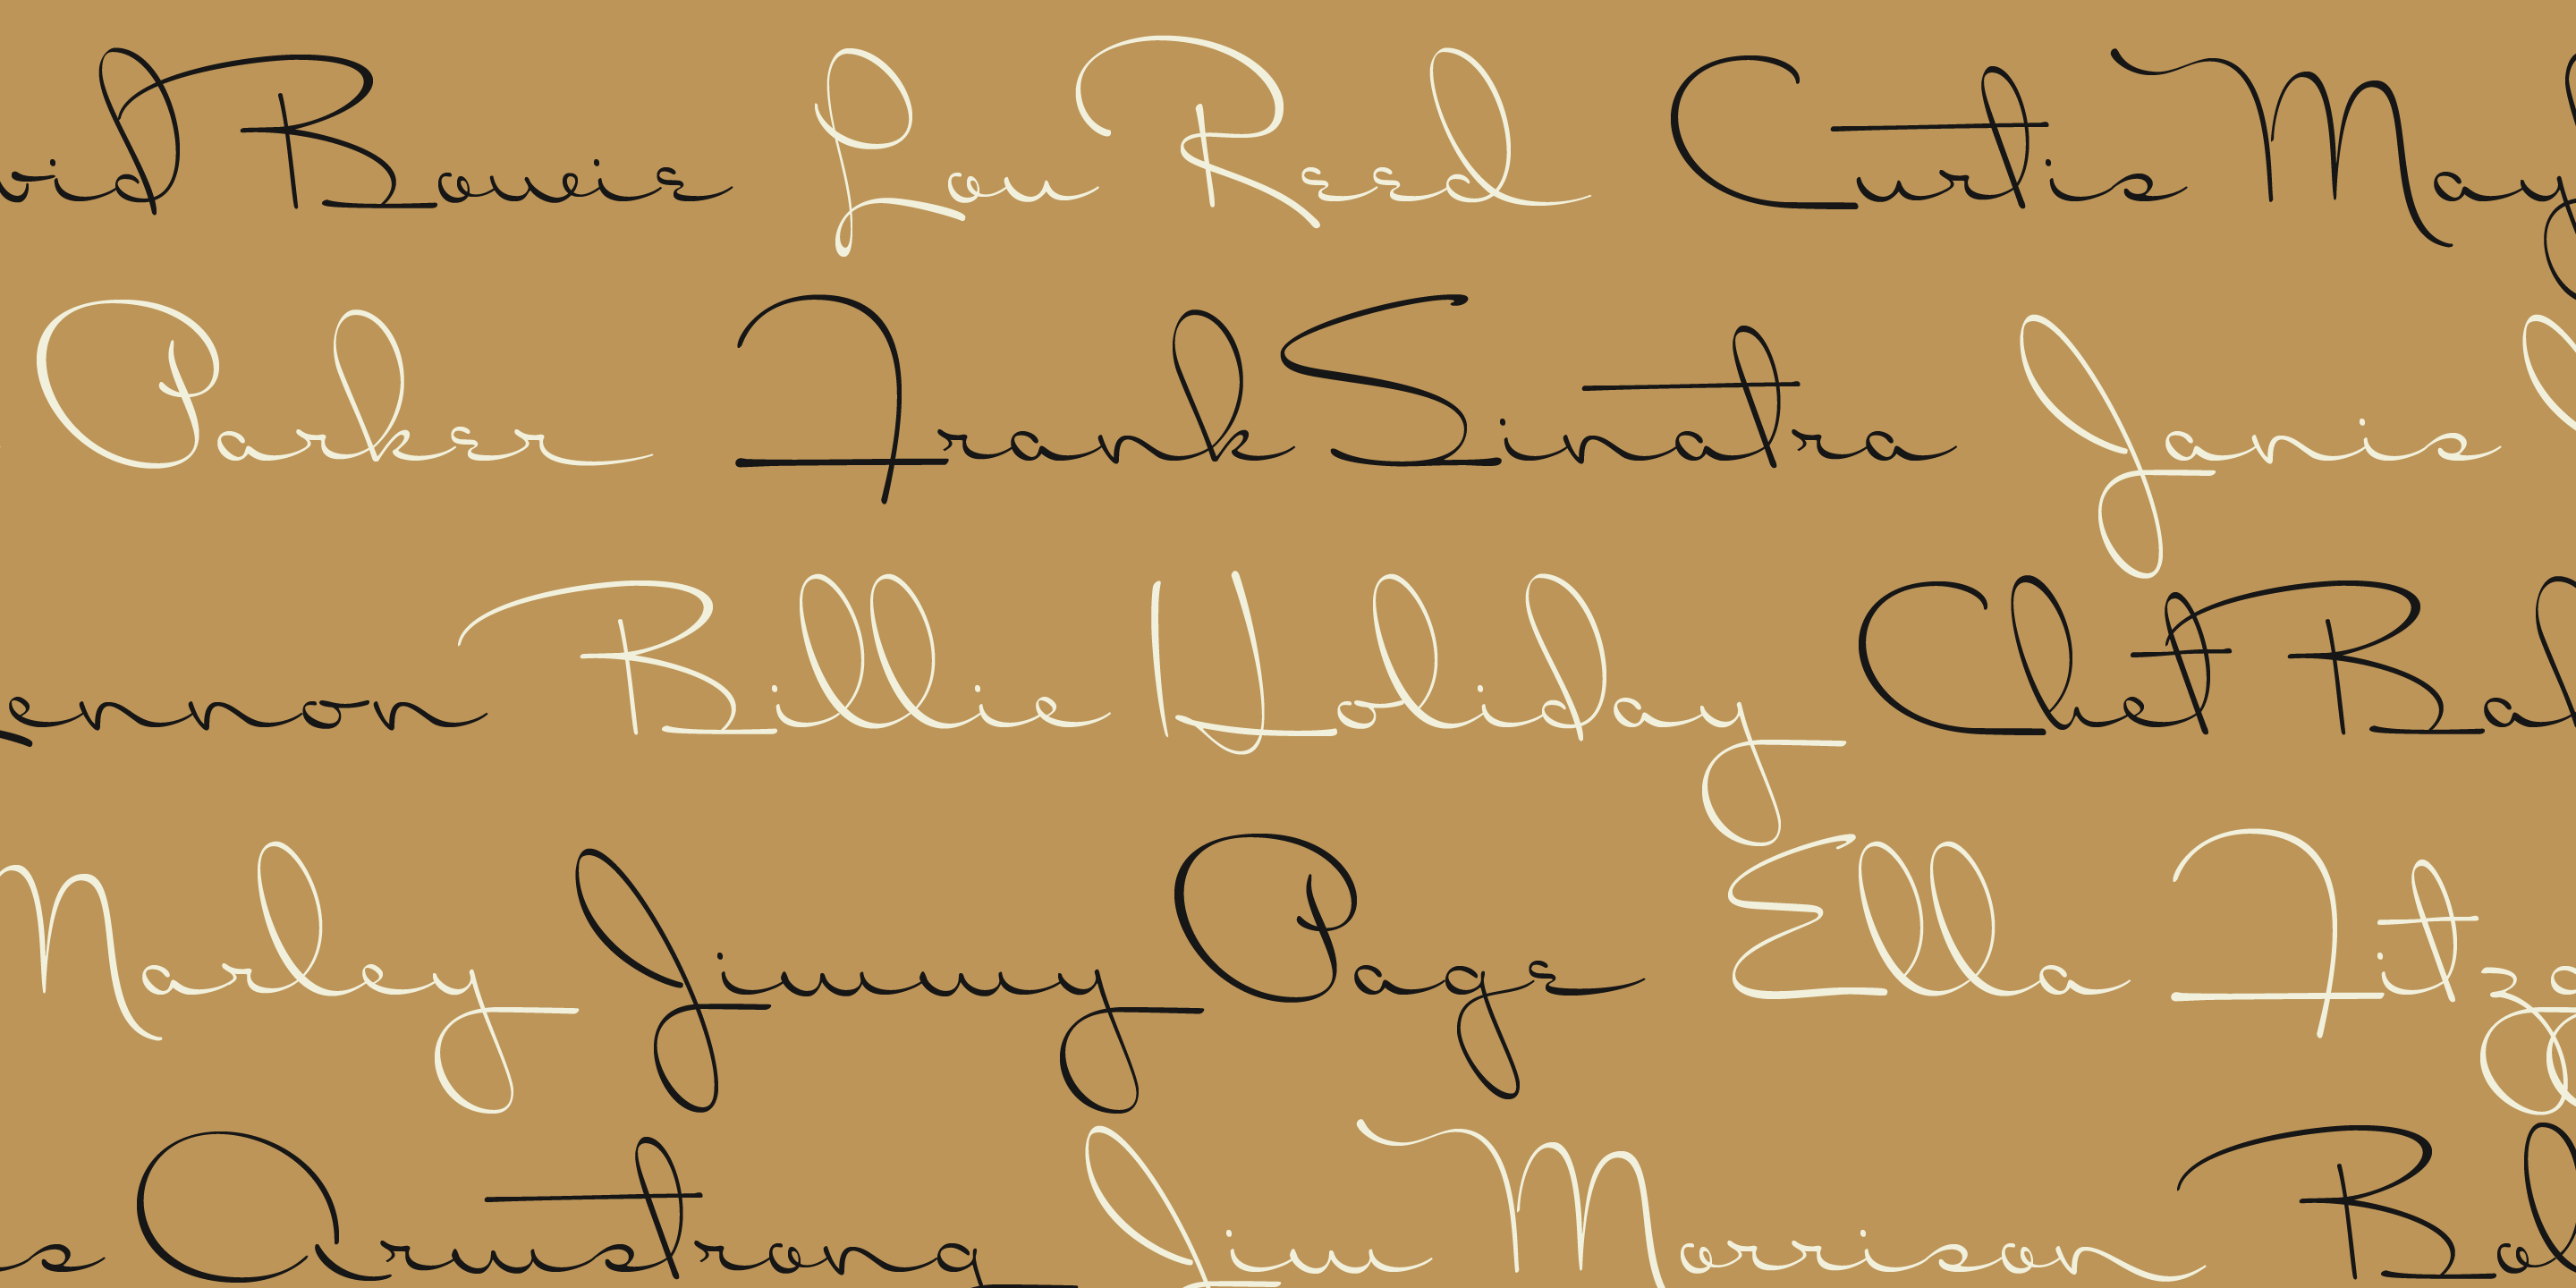 vid Bowie Lou Reed Curtis May
Parker Frank Sinatra Janis
ennon Billie Holiday Chet Ba
Marley Jimmy Page Ella Fitzg
s Armstrong Jim Morrison Bo